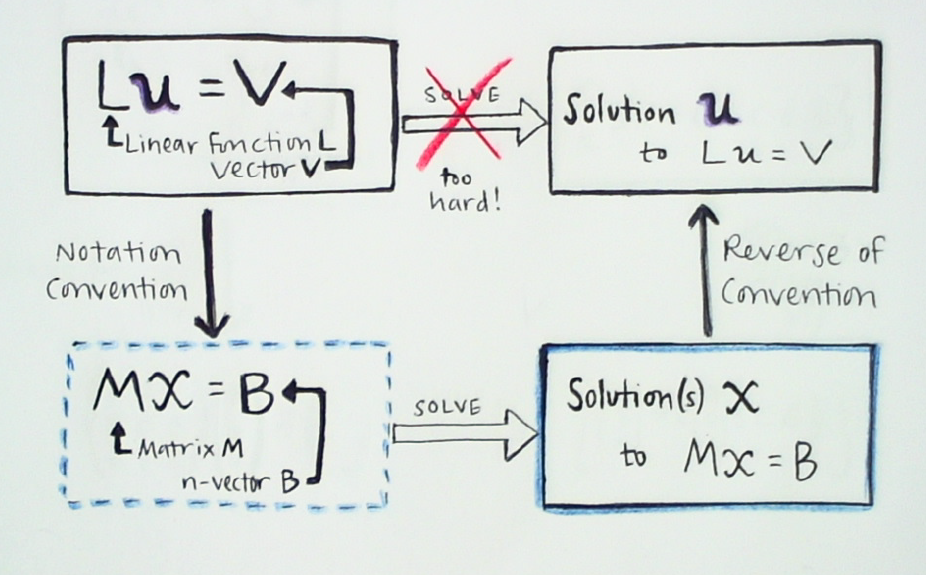 Lu = V
Linear Function L
vector V
SOLVE
too
hard!
Solution u
to Lu = V
Notation
Convention
Reverse of
Convention
MX = B
Matrix M
n-vector B
SOLVE
Solution(s) X
to MX = B